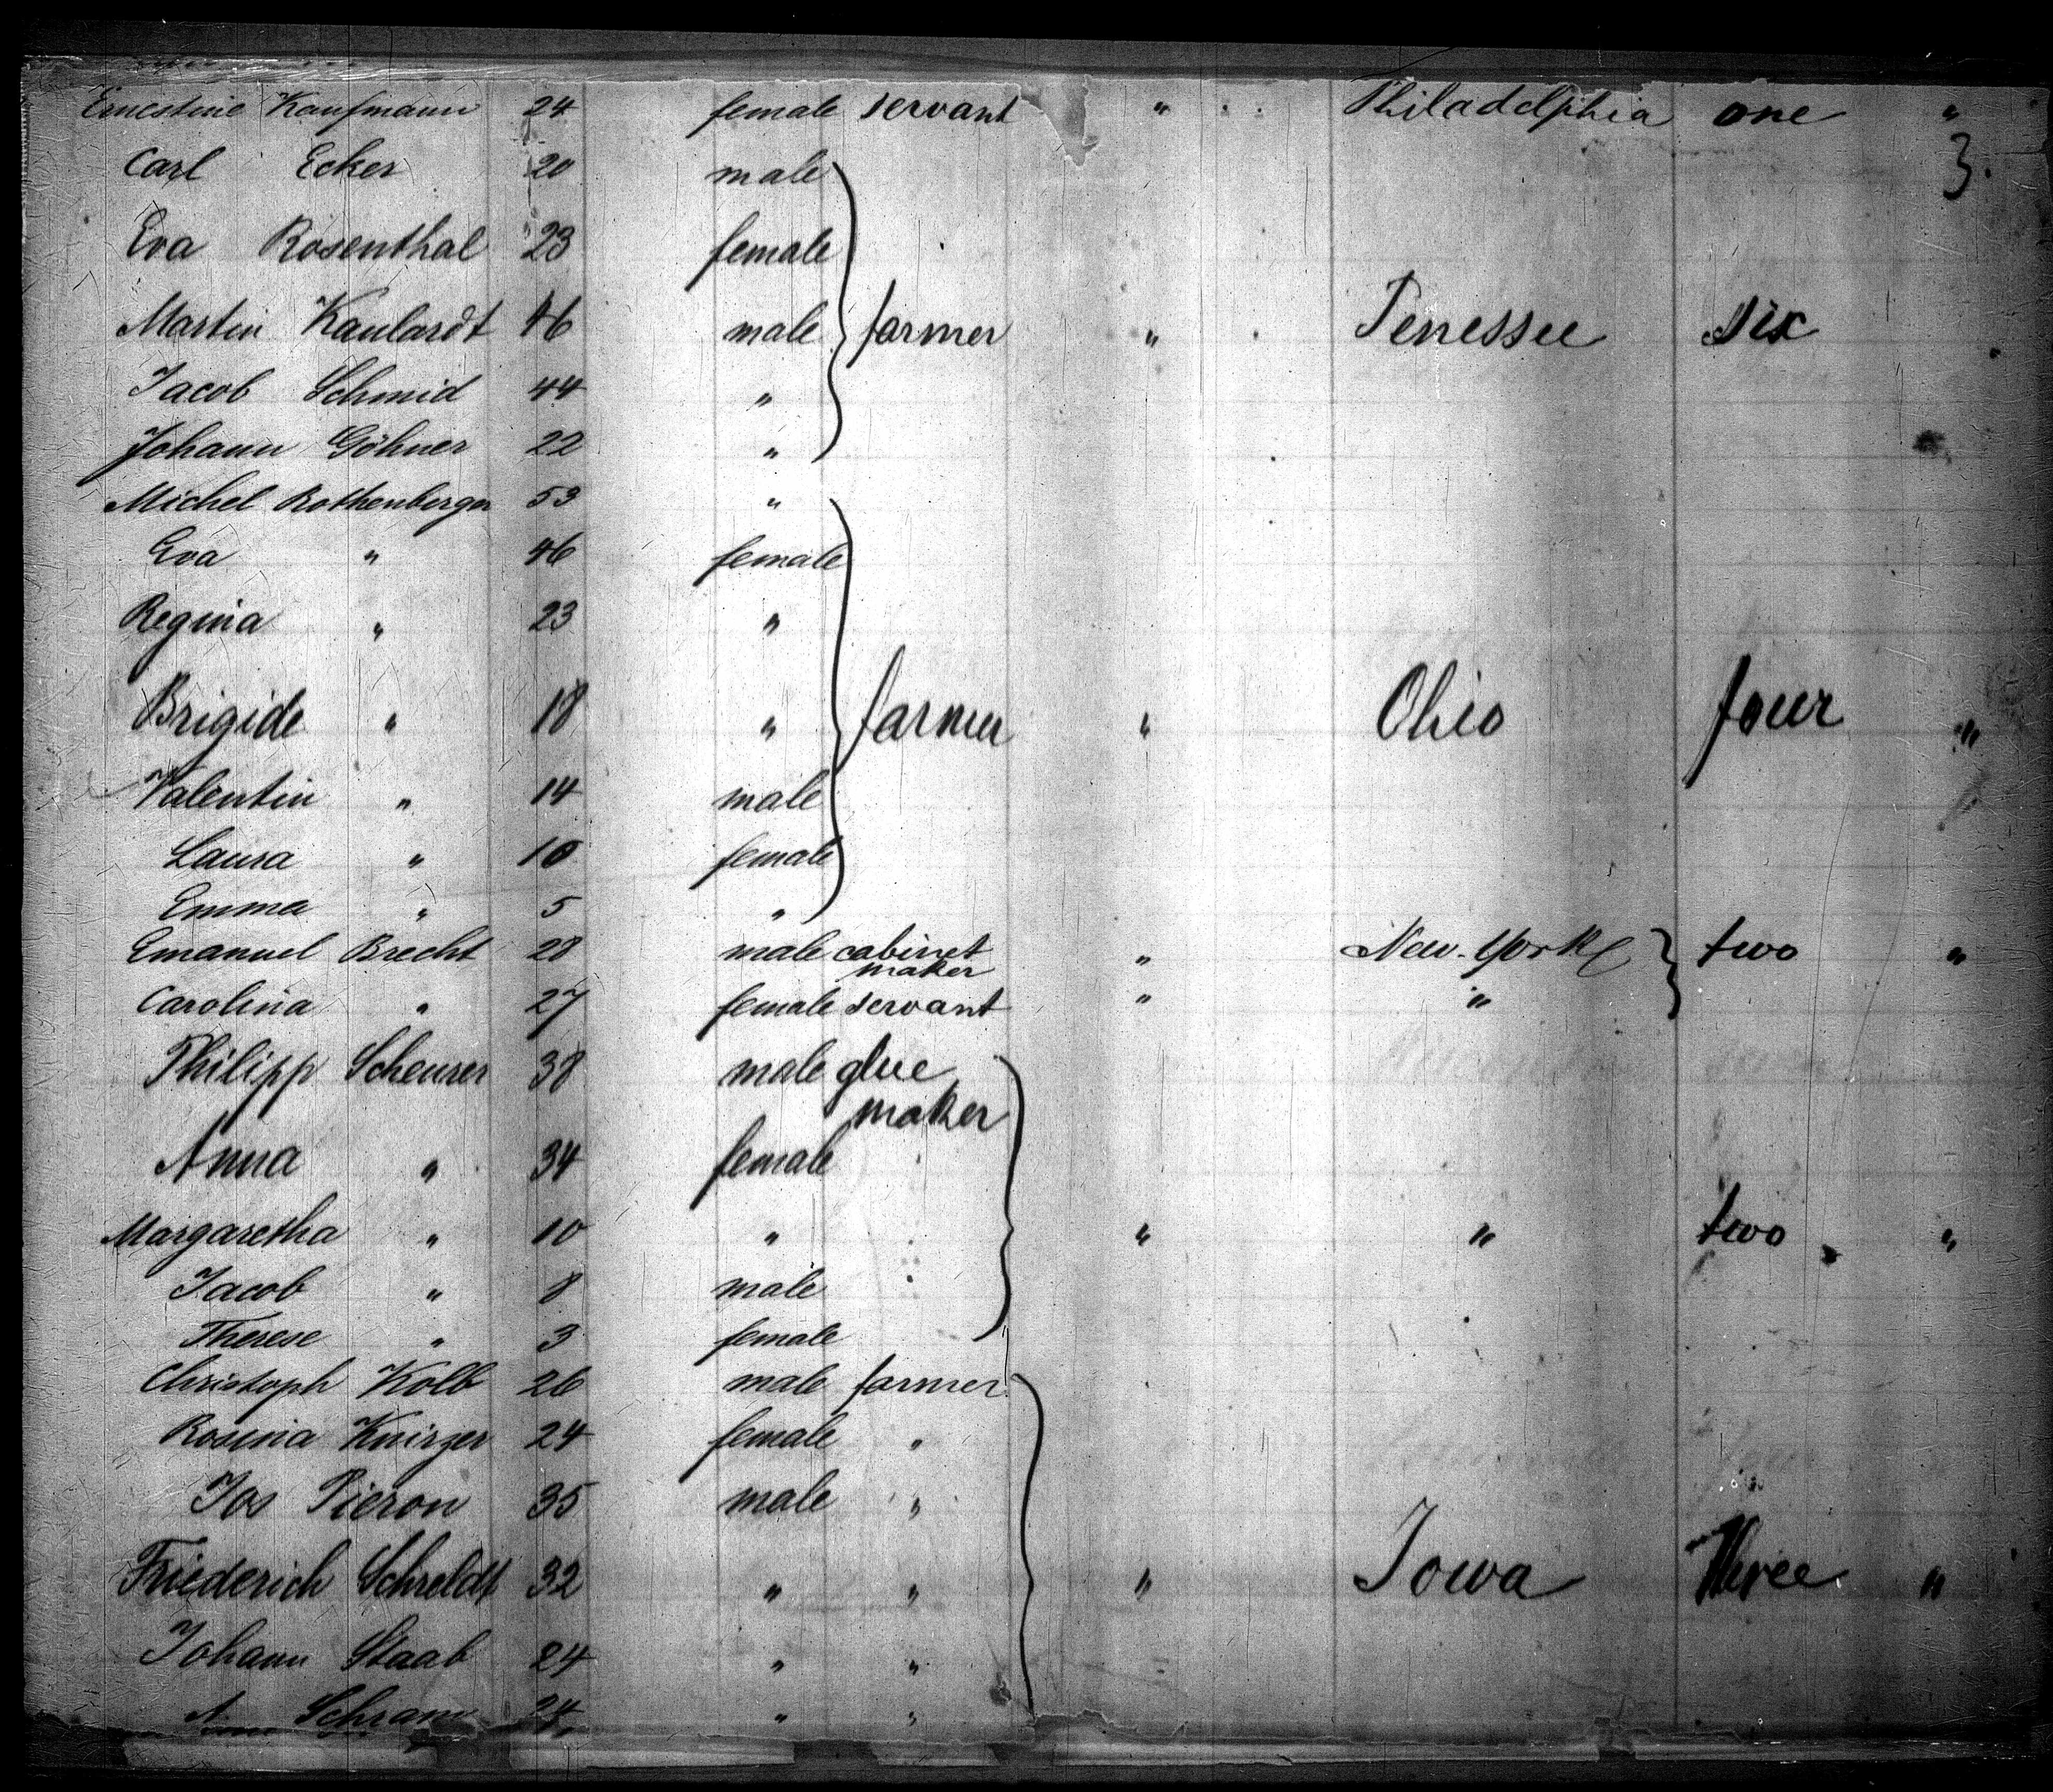 Ernestine Kaufmann 24 female servant " Philadelphia one "
3.
Carl Ecker 20 male
Eva Rosenthal 23 female
Martin Kaulardt 46 male farmer " Tenessee six
Jacob Schmid 44 "
Johann Göhner 22 "
Michel Rothenberger 53 "
Eva " 46 female
Regina " 23 "
Brigide " 18 " farmer " Ohio four "
Valentin " 14 male
Laura " 10 female
Emma " 5 "
Emanuel Brecht 28 male cabinet maker " New-York two "
Carolina " 27 female servant " "
Philipp Scheurer 38 male glue maker
Anna " 34 female
Margaretha " 10 " " " two "
Jacob " 8 male
Therese " 3 female
Christoph Kolb 26 male farmer
Rosina Knirzer 24 female "
Jos Pieron 35 male "
Friederich Schreldt 32 " " " Iowa three "
Johann Staab 24 " "
Schram 24 " "